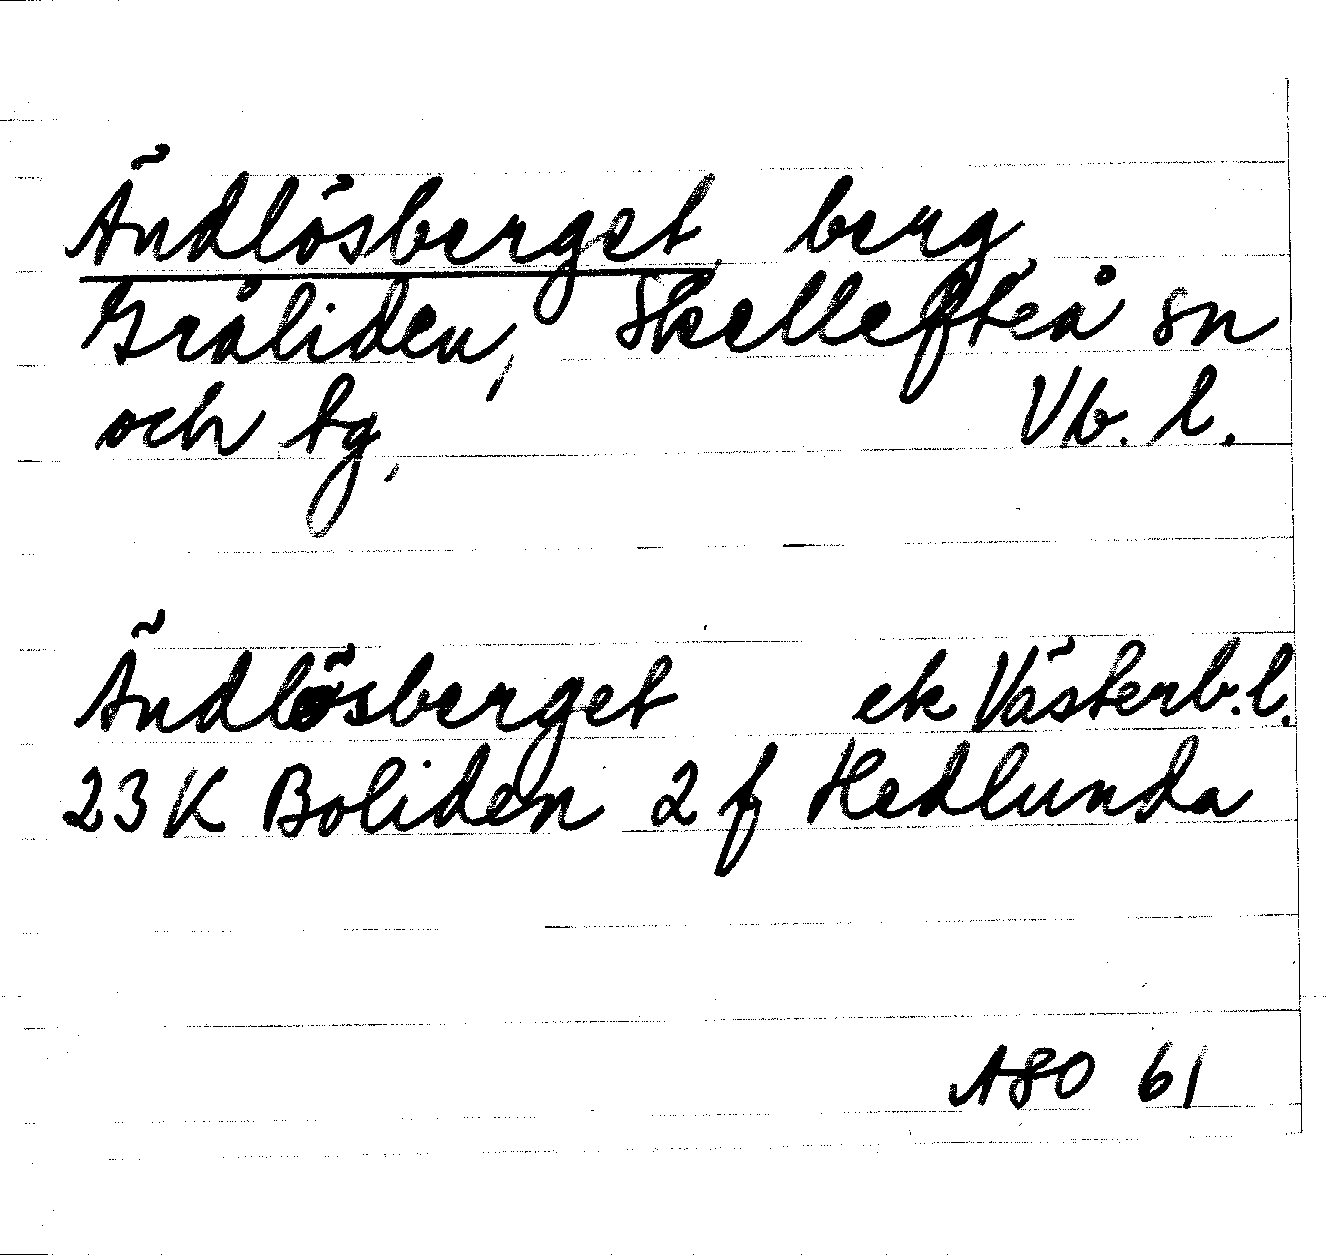 Ändlösberget, berg,
Gråliden, Skellefteå sn
och tg, Vb. l.
Ändlösberget ek Västerb. l.
23 K Boliden 2 f Hedlunda
ASO 61